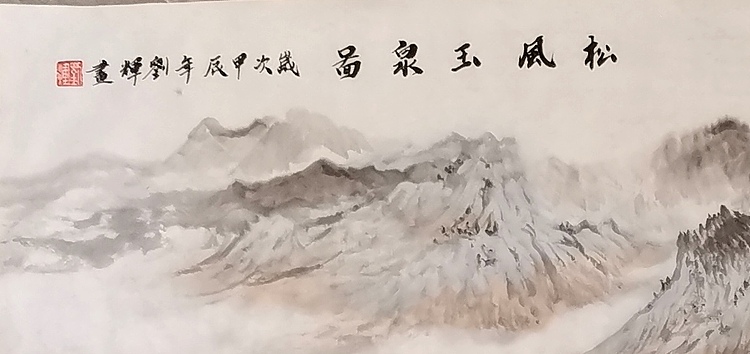 松風玉泉啚 歲次甲辰年劉輝畫